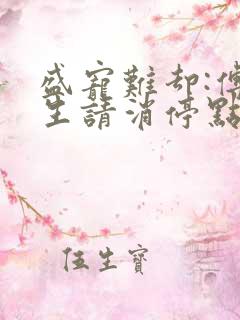 盛寵難却:傅
生請消停點
任生寶